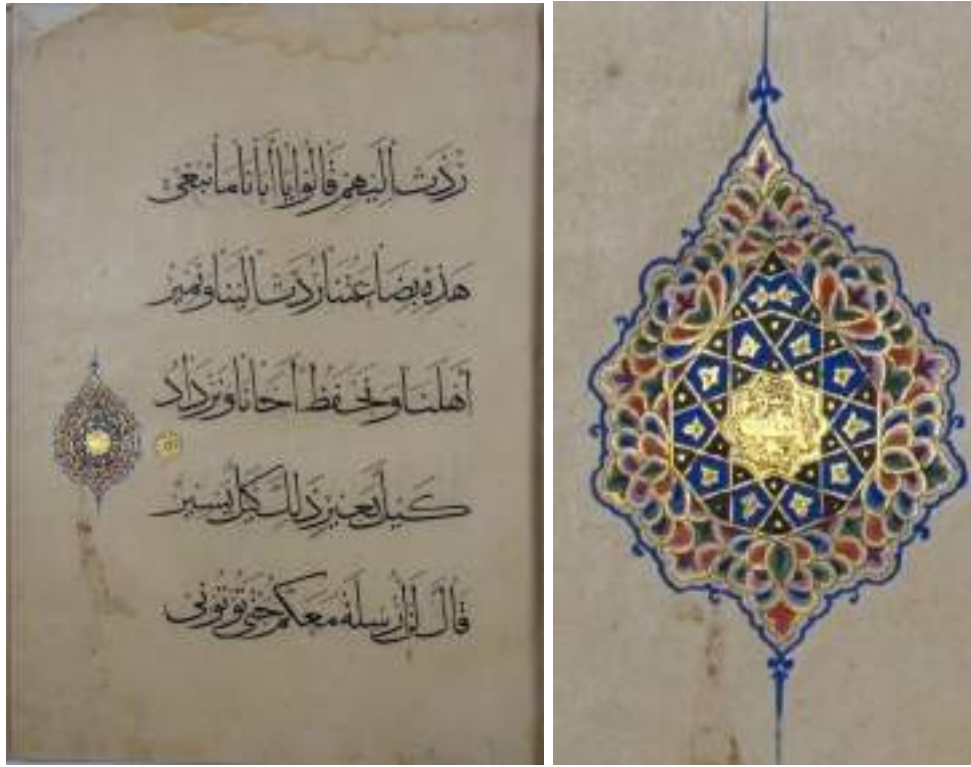 ردت اليهم قالوا يا ابانا ما نبغى
هذه بضاعتنا ردت الينا ونمير
اهلنا ونحفظ اخانا ونزداد
كيل بعير ذلك كيل يسير
قال لن ارسله معكم حتى توتونى